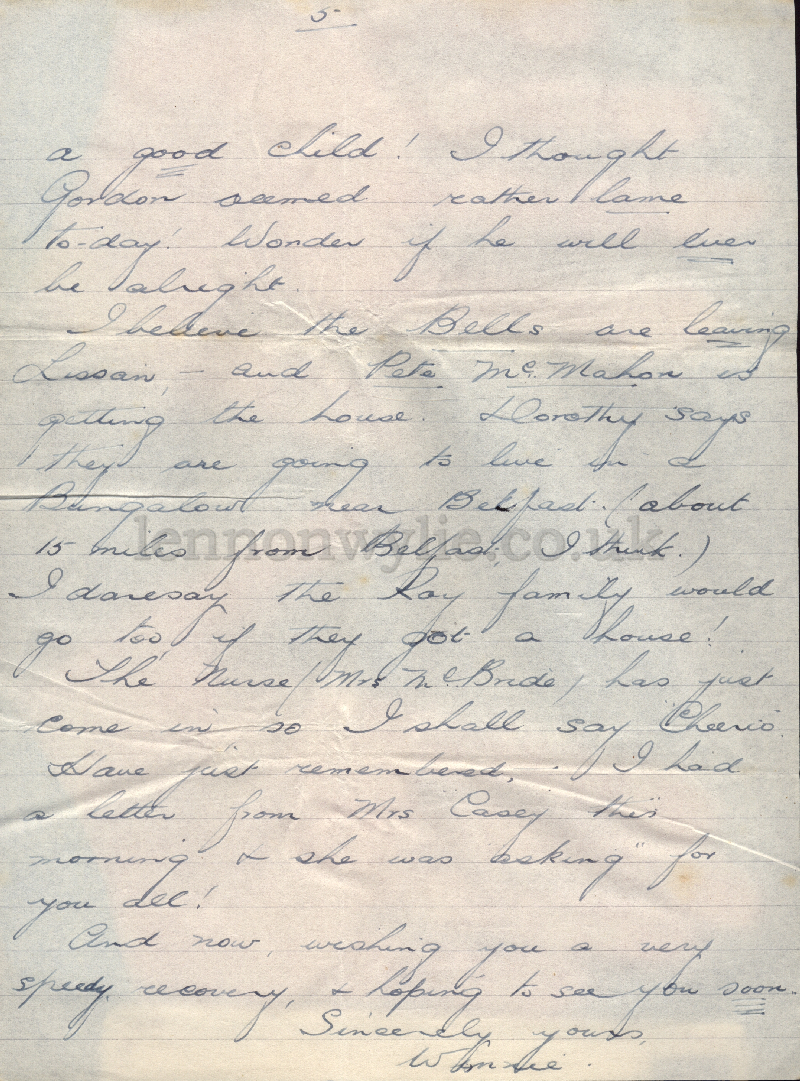 5
a good child! I thought
Gordon seemed rather lame
to-day! Wonder if he will ever
be alright.
I believe the Bells are leaving
Lissan, - and Pete McMahon is
getting the house. Dorothy says
they are going to live in a
Bungalow near Belfast. (about
lennonwylie.co.uk
15 miles from Belfast, I think.)
I daresay the Ray family would
go too if they got a house!
The Nurse (Mrs McBride) has just
come in so I shall say "Cheerio.
Have just remembered, . I had
a letter from Mrs Casey this
morning & she was "asking" for
you all!
And now, wishing you a very
speedy recovery, & hoping to see you soon.
Sincerely yours,
Winnie.